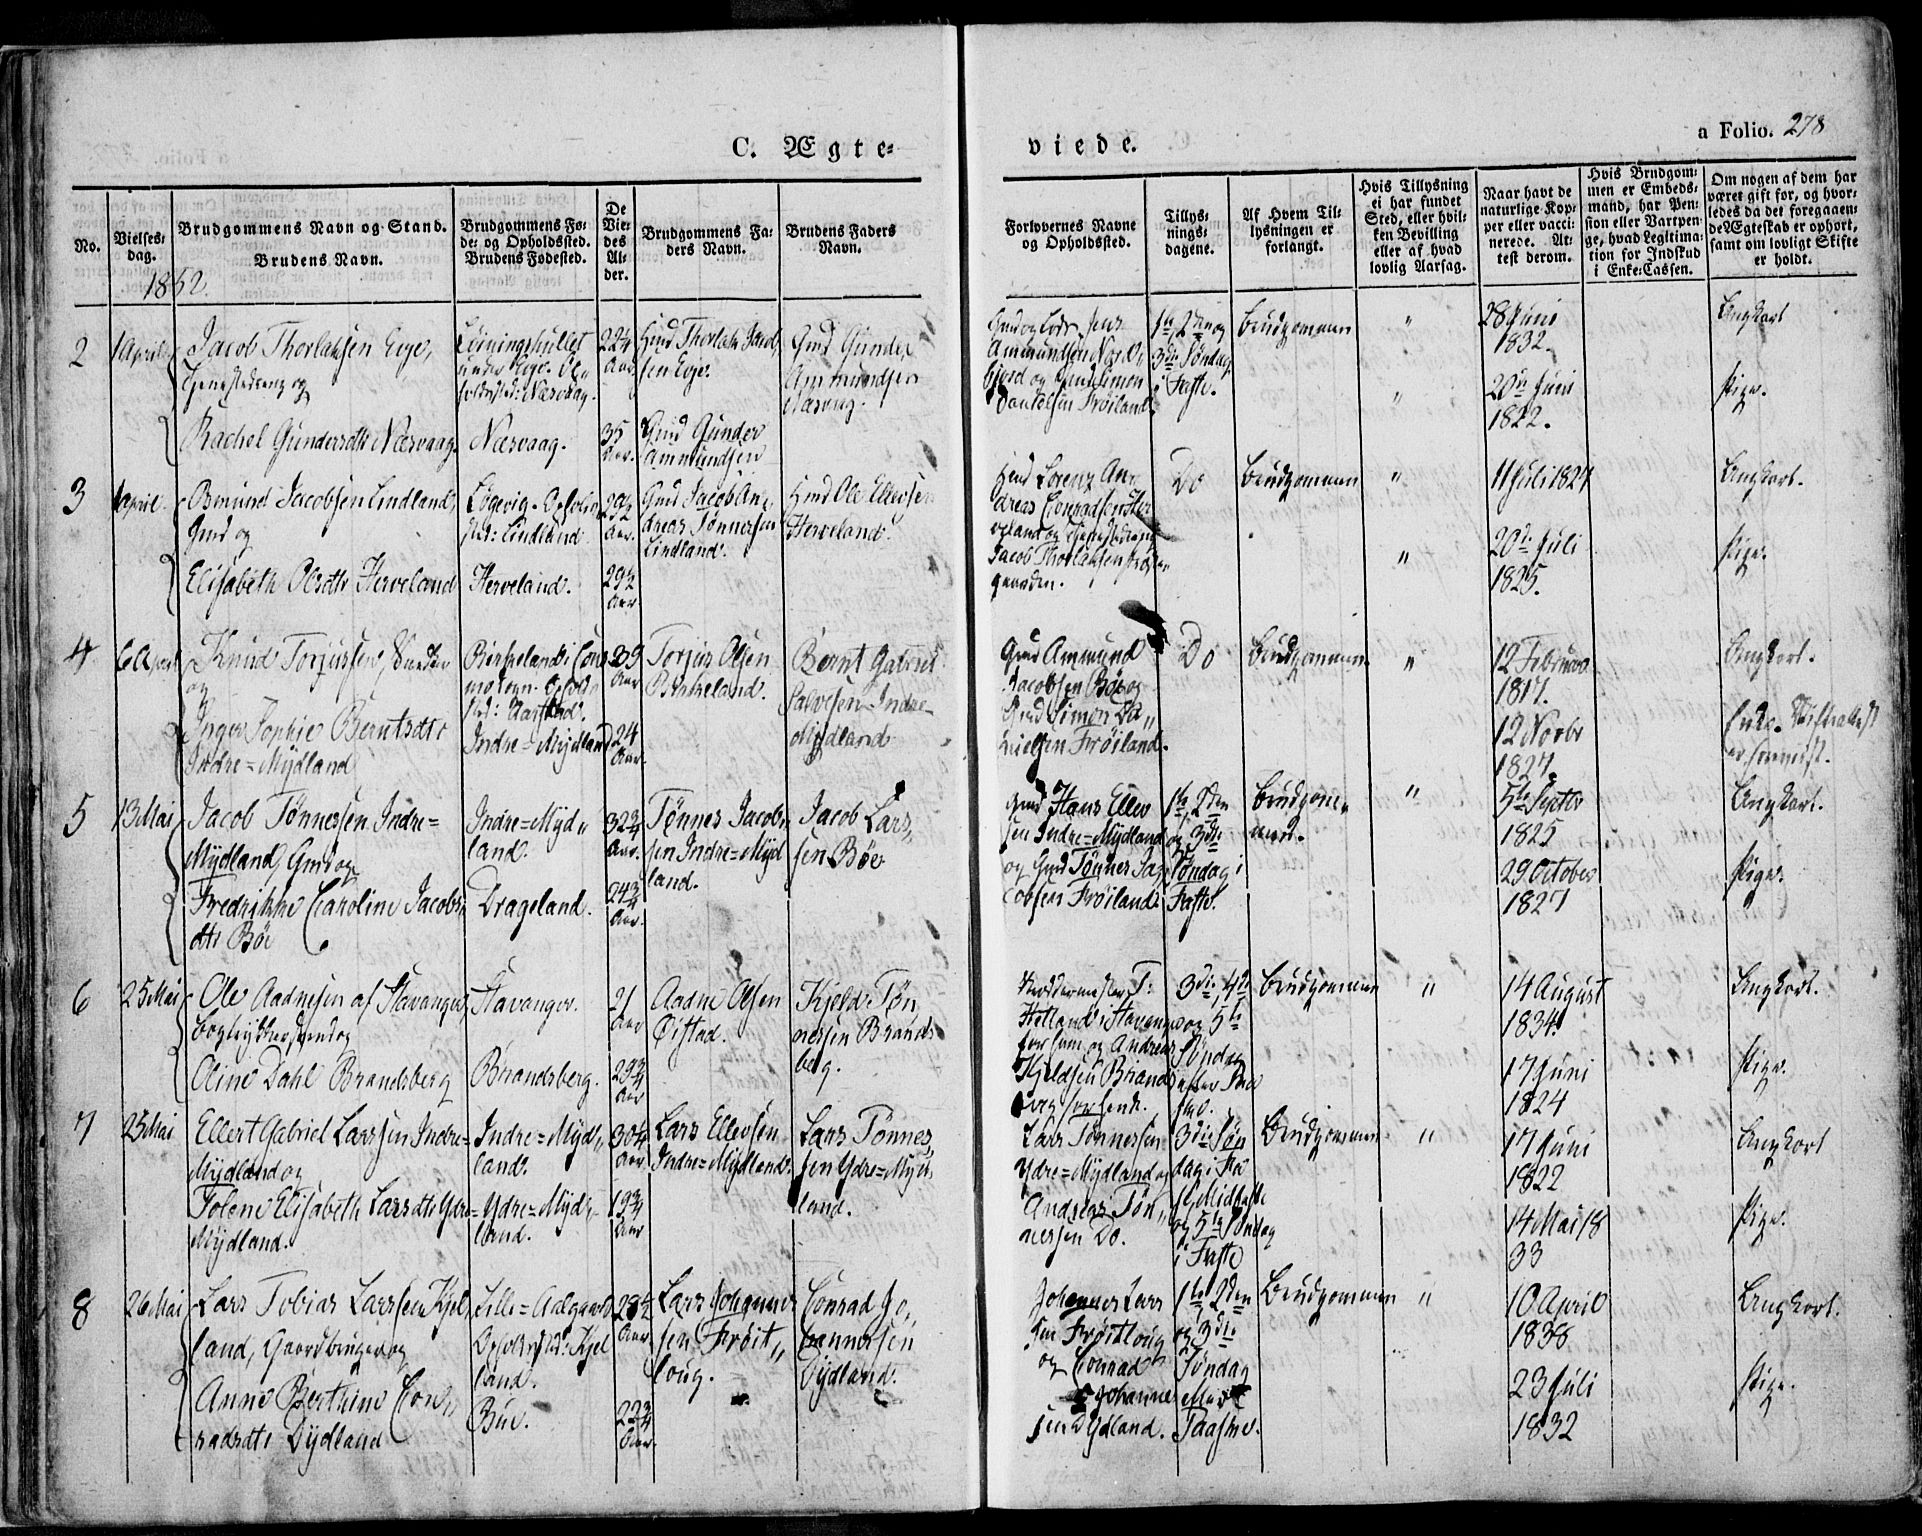 C. Ægte-
viede.
a Folio. 278
No.
Vielses-
dag.
Brudgommens Navn og Stand.
Brudens Navn.
Brudgommens Fø-
de- og Opholdssted.
Brudens Fødested.
De
Vie-
des
Al-
der.
Brudgommens Fa-
ders Navn.
Brudens Faders
Navn.
Forlovernes Navne
og Opholdssted.
Tillys-
nings-
dagene.
Af Hvem Til-
lysningen er
forlangt.
Hvis Tillysning
ei har fundet
Sted, eller hvil-
ken Bevilling
eller af hvad
lovlig Aarsag.
Naar havt de
naturlige Kop-
per eller vacci-
nerede. At-
test derom.
Hvis Brudgom-
men er Embeds-
mand, har Pen-
sion eller Vartpen-
ge, hvad Legitima-
tion for Indskud
i Enke-Cassen.
Om nogen af dem har
været gift før, og hvor-
ledes da det foregaaen-
de Ægteskab er ophørt,
samt om lovligt Skifte
er holdt.
1852.
2
1 April
Jacob Thorlaksen Eeje,
Tjenestedreng og
Rachel Gundersdtr Næsvaag.
under Eeje. Op-
holdssted: Næsvaag.
Næsvaag.
22 3/4
Aar.
35
Aar.
Hmd Thorlak Jacob-
sen Eeje.
Gmd Gunder
Ammundsen
Gmd Gunder
Ammundsen
Næsvaag.
Ammundsen
og Gmd Simon
Danielsen Frøiland.
1ste, 2den og
3die Søndag
i Faste.
Brudgommen
"
"
28 Juni
1832.
20de Juni
1822.
Ungkarl
Pige.
3
1 April.
Osmund Jacobsen Lindland,
Gmd og
Elisabeth Olsdtr Herveland
Løgevig. Opholds-
sted: Lindland
Herveland.
29 1/2
Aar.
29 1/2
Aar.
Gmd Jacob An-
dreas Tønnesen
Lindland.
Hmd Ole Ellevsen
Herveland.
Hmd Lorenz An-
dreas Conradsen Her-
veland og Tjenestedreng
Jacob Thorlaksen
gaarden.
Do
Brudgommen
"
"
11 Juli 1824
20de Juli
1825.
Ungkarl.
Pige.
4
6 April
Knud Torjussen,
og
Inger Sophie Berntsdtr
Indre=Mydland
Birkeland i
Indre=Mydland
Aar
24
Aar.
Torjus Olsen
Birkeland.
Bernt Gabriel
Salvesen Indre-
Mydland
Gmd Ammund
Jacobsen Bøe og
Gmd Simon Da-
nielsen Frøiland.
Do
Brudgommen
"
12 Februar
1817.
12 Novbr
1827
Ungkarl.
Enke.
5
13 Mai
Jacob Tønnessen Indre=
Mydland, Gmd og
Fredrikke Caroline Jacobs-
dtr Bøe
Indre=Myd-
land.
Drageland.
32 3/4
Aar.
24 3/4
Aar.
Tønnes Jacob-
sen Indre=Myd
land.
Jacob Lars-
sen Bøe
Gmd Hans Ellev
sen Indre=Mydland
og Gmd Tønnes Ja-
cobsen Frøiland.
1ste, 2den
og 3die
Søndag i
Faste.
Brudgom-
men.
"
5te Septbr
1825
29 October
1827
Ungkarl.
Pige.
6
25 Mai
Ole Aadnesen af Stavanger,
Bogtrykkersvend og
Oline Dahl Brandsberg
Stavanger.
Brandsberg.
21
Aar
29 3/4
Aar
Aadne Olsen
Øistad.
Kjeld Tøn-
nessen Brands
berg.
Helland i Stavanger
og Andreas
Kjeldsen Brands
berg
3die, 4de
og 5te
Søndag
efter
Brudgommen
"
14 August
1834
17 Juni
1824
Ungkarl.
Pige.
7
25 Mai
Ellert Gabriel Larssen Indre=
Mydland og
Tolene Elisabeth Larsdtr Ydre=
Mydland.
Indre=Myd-
land.
Ydre=Myd-
land.
30 1/4
Aar.
19 3/4
Aar
Lars Ellevsen
Indre=Mydland.
Lars Tønnes-
sen Ydre=Myd-
land.
Lars Tønnessen
Ydre=Mydland og
Andreas Tøn-
nessen Do.
3die Søn
dag i Fa
ste, Midfaste
og 5te Søndag
i Faste
Brudgommen
"
17 Juni
1822
14 Mai 18
33
Ungkarl
Pige.
8
26 Mai
Lars Tobias Larssen Kjel-
land, Gaardbruger og
Anne Berthine Con-
radsdtr Dydland
Lille=Aalgaard
Opholdssted: Kjel
land.
Bue.
28 1/2
Aar.
22 3/4
Aar.
Lars Johannes-
sen Frøit-
loug.
Conrad Jo-
hannessen
Dydland.
Johannes Lars
sen Frøitloug
og Conrad
Johannes
sen Dydland.
1ste, 2den
og 3die
Søndag
efter
Paaske.
Brudgommen
"
10 April
1838
23 Juli
1832
Ungkarl.
Pige.